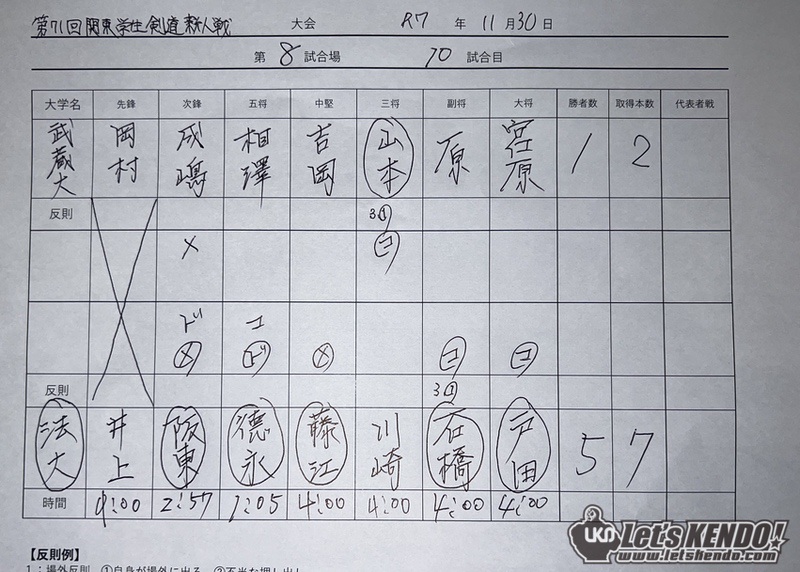 第71回関東学生剣道新人戦 大会 R7 年 11 月 30 日
第 8 試合場 10 試合目
大学名 先鋒 次鋒 五将 中堅 三将 副将 大将 勝者数 取得本数 代表者戦
武蔵大 岡村 成嶋 相澤 吉岡 山本 原 宮原 1 2
反則 3①
メ コ
ド コ
メ ド メ コ コ
反則 3①
法大 井上 阪東 德永 藤江 川崎 石橋 戸田 5 7
時間 4:00 2:57 1:05 4:00 4:00 4:00 4:00
【反則例】
1:場外反則 ①自身が場外に出る ②不当な押し出し
LKD Let's KENDO!
www.letskendo.com